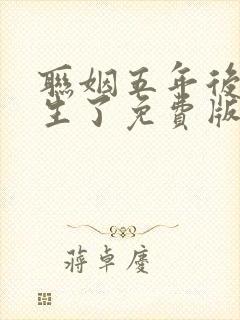 聯姻五年後
生了免費版
蔣卓慶